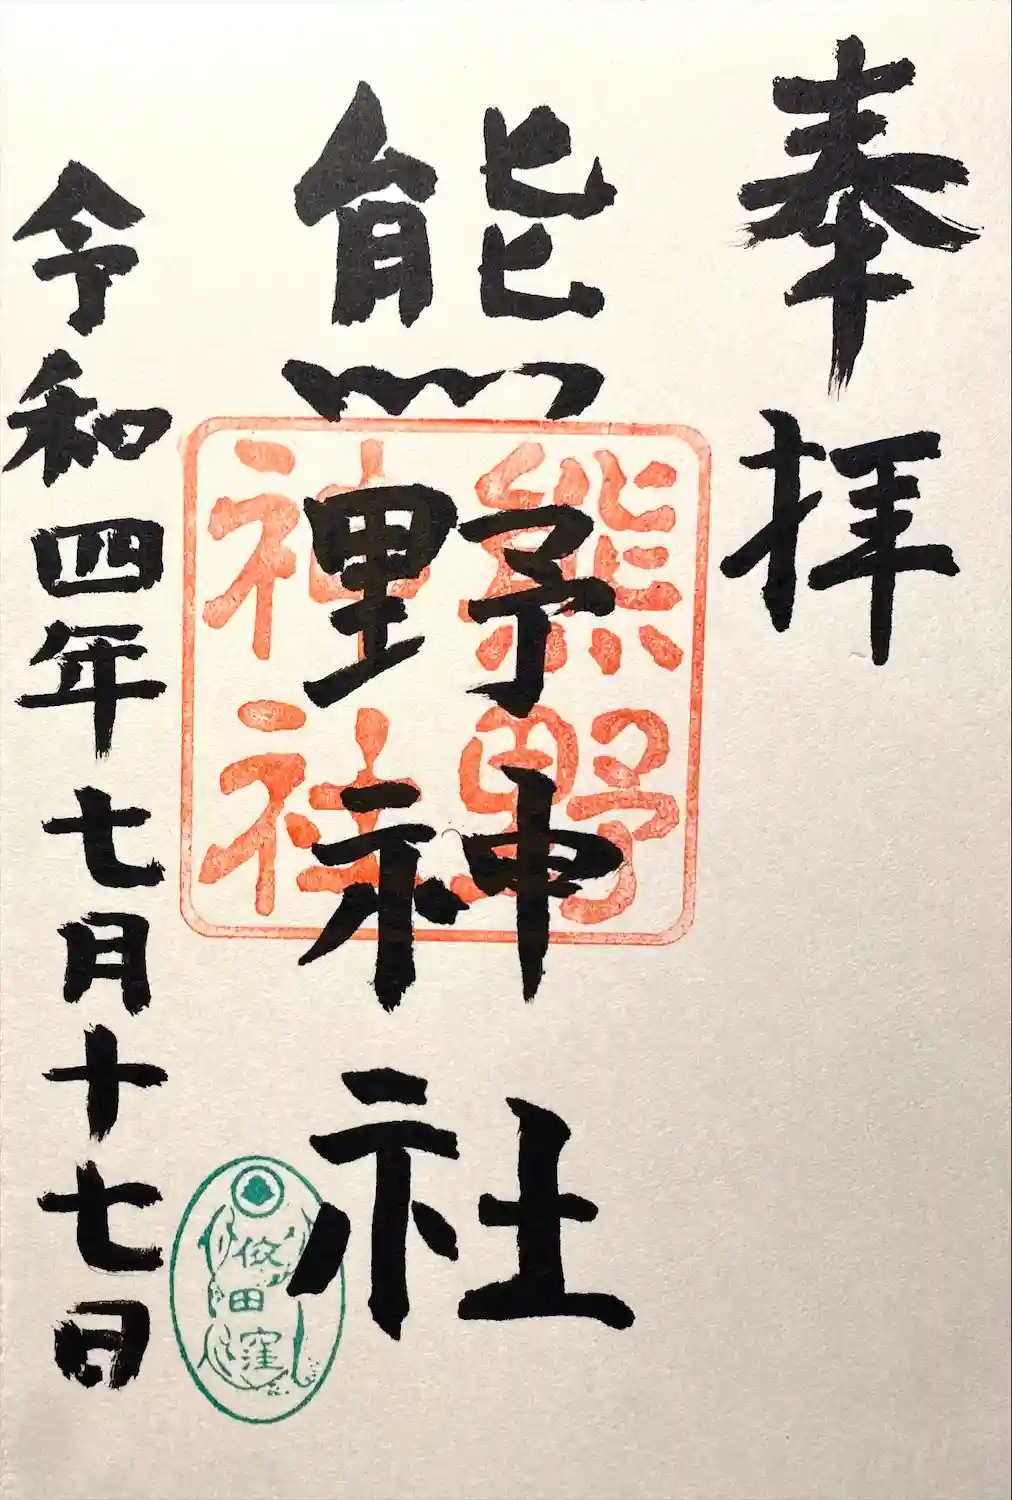 奉拝
熊野神社
熊野
神社
令和四年七月十七日
田窪